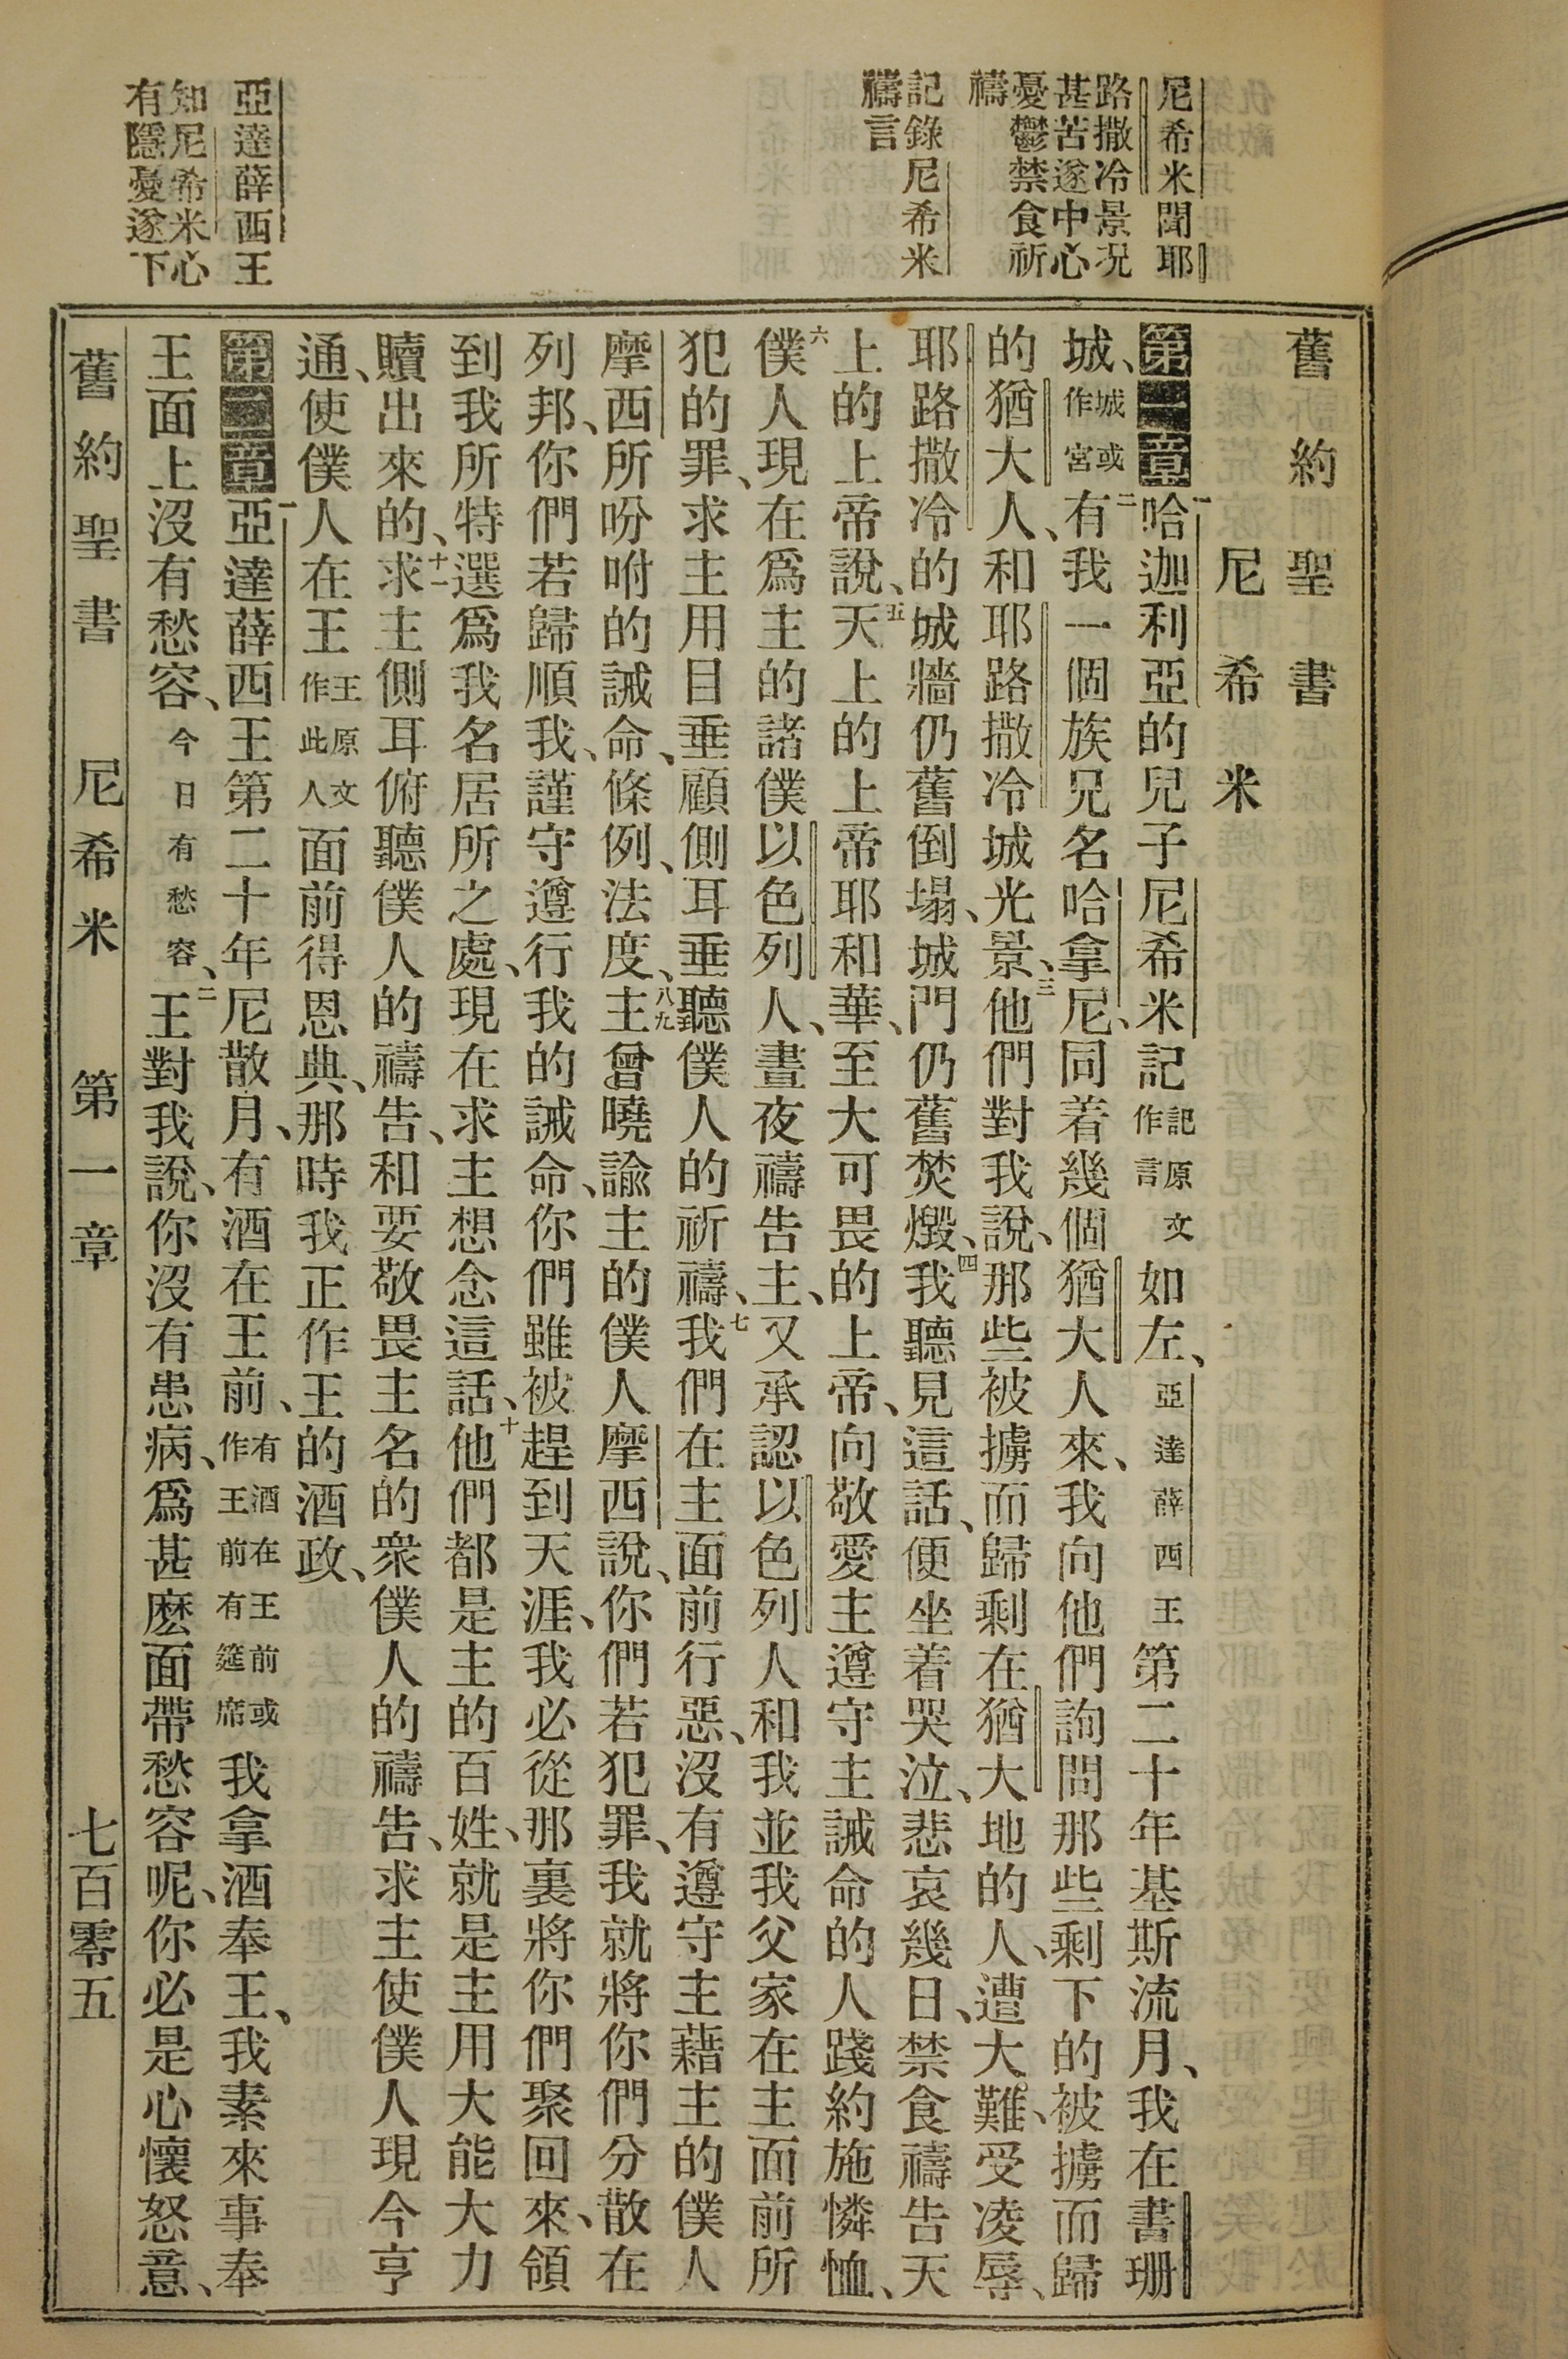 尼希米聞耶
路撒冷景况
甚苦遂中心
憂鬱禁食祈
禱
記錄尼希米
禱言
亞達薛西王
知尼希米心
有隱憂遂下
舊約聖書
尼希米
第一章一哈迦利亞的兒子尼希米記記原文作言如左、亞達薛西王第二十年基斯流月、我在書珊
城、城或作宮二有我一個族兄名哈拿尼、同着幾個猶大人來、我向他們詢問那些剩下的被擄而歸
的猶大人、和耶路撒冷城光景、三他們對我說、那些被擄而歸剩在猶大地的人、遭大難、受凌辱、
耶路撒冷的城牆仍舊倒塌、城門仍舊焚燬、四我聽見這話、便坐着哭泣、悲哀幾日、禁食禱告天
上的上帝說、五天上的上帝耶和華、至大可畏的上帝、向敬愛主遵守主誡命的人踐約施憐恤、
六僕人現在爲主的諸僕以色列人、晝夜禱告主、又承認以色列人和我並我父家在主面前所
犯的罪、求主用目垂顧側耳垂聽僕人的祈禱、七我們在主面前行惡、沒有遵守主藉主的僕人
摩西所吩咐的誡命、條例、法度、八九主曾曉諭主的僕人摩西說、你們若犯罪、我就將你們分散在
列邦、你們若歸順我、謹守遵行我的誡命、你們雖被趕到天涯、我必從那裏將你們聚回來、領
到我所特選爲我名居所之處、現在求主想念這話、十他們都是主的百姓、就是主用大能大力
贖出來的、十一求主側耳俯聽僕人的禱告、和要敬畏主名的衆僕人的禱告、求主使僕人現今亨
通、使僕人在王王原文作此人面前得恩典、那時我正作王的酒政、
第二章一亞達薛西王第二十年尼散月、有酒在王前、有酒在王前或作王前有筵席我拿酒奉王、我素來事奉
王面上沒有愁容、今日有愁容、二王對我說、你沒有患病、爲甚麽面帶愁容呢、你必是心懷怒意、
舊約聖書 尼希米 第一章 七百零五